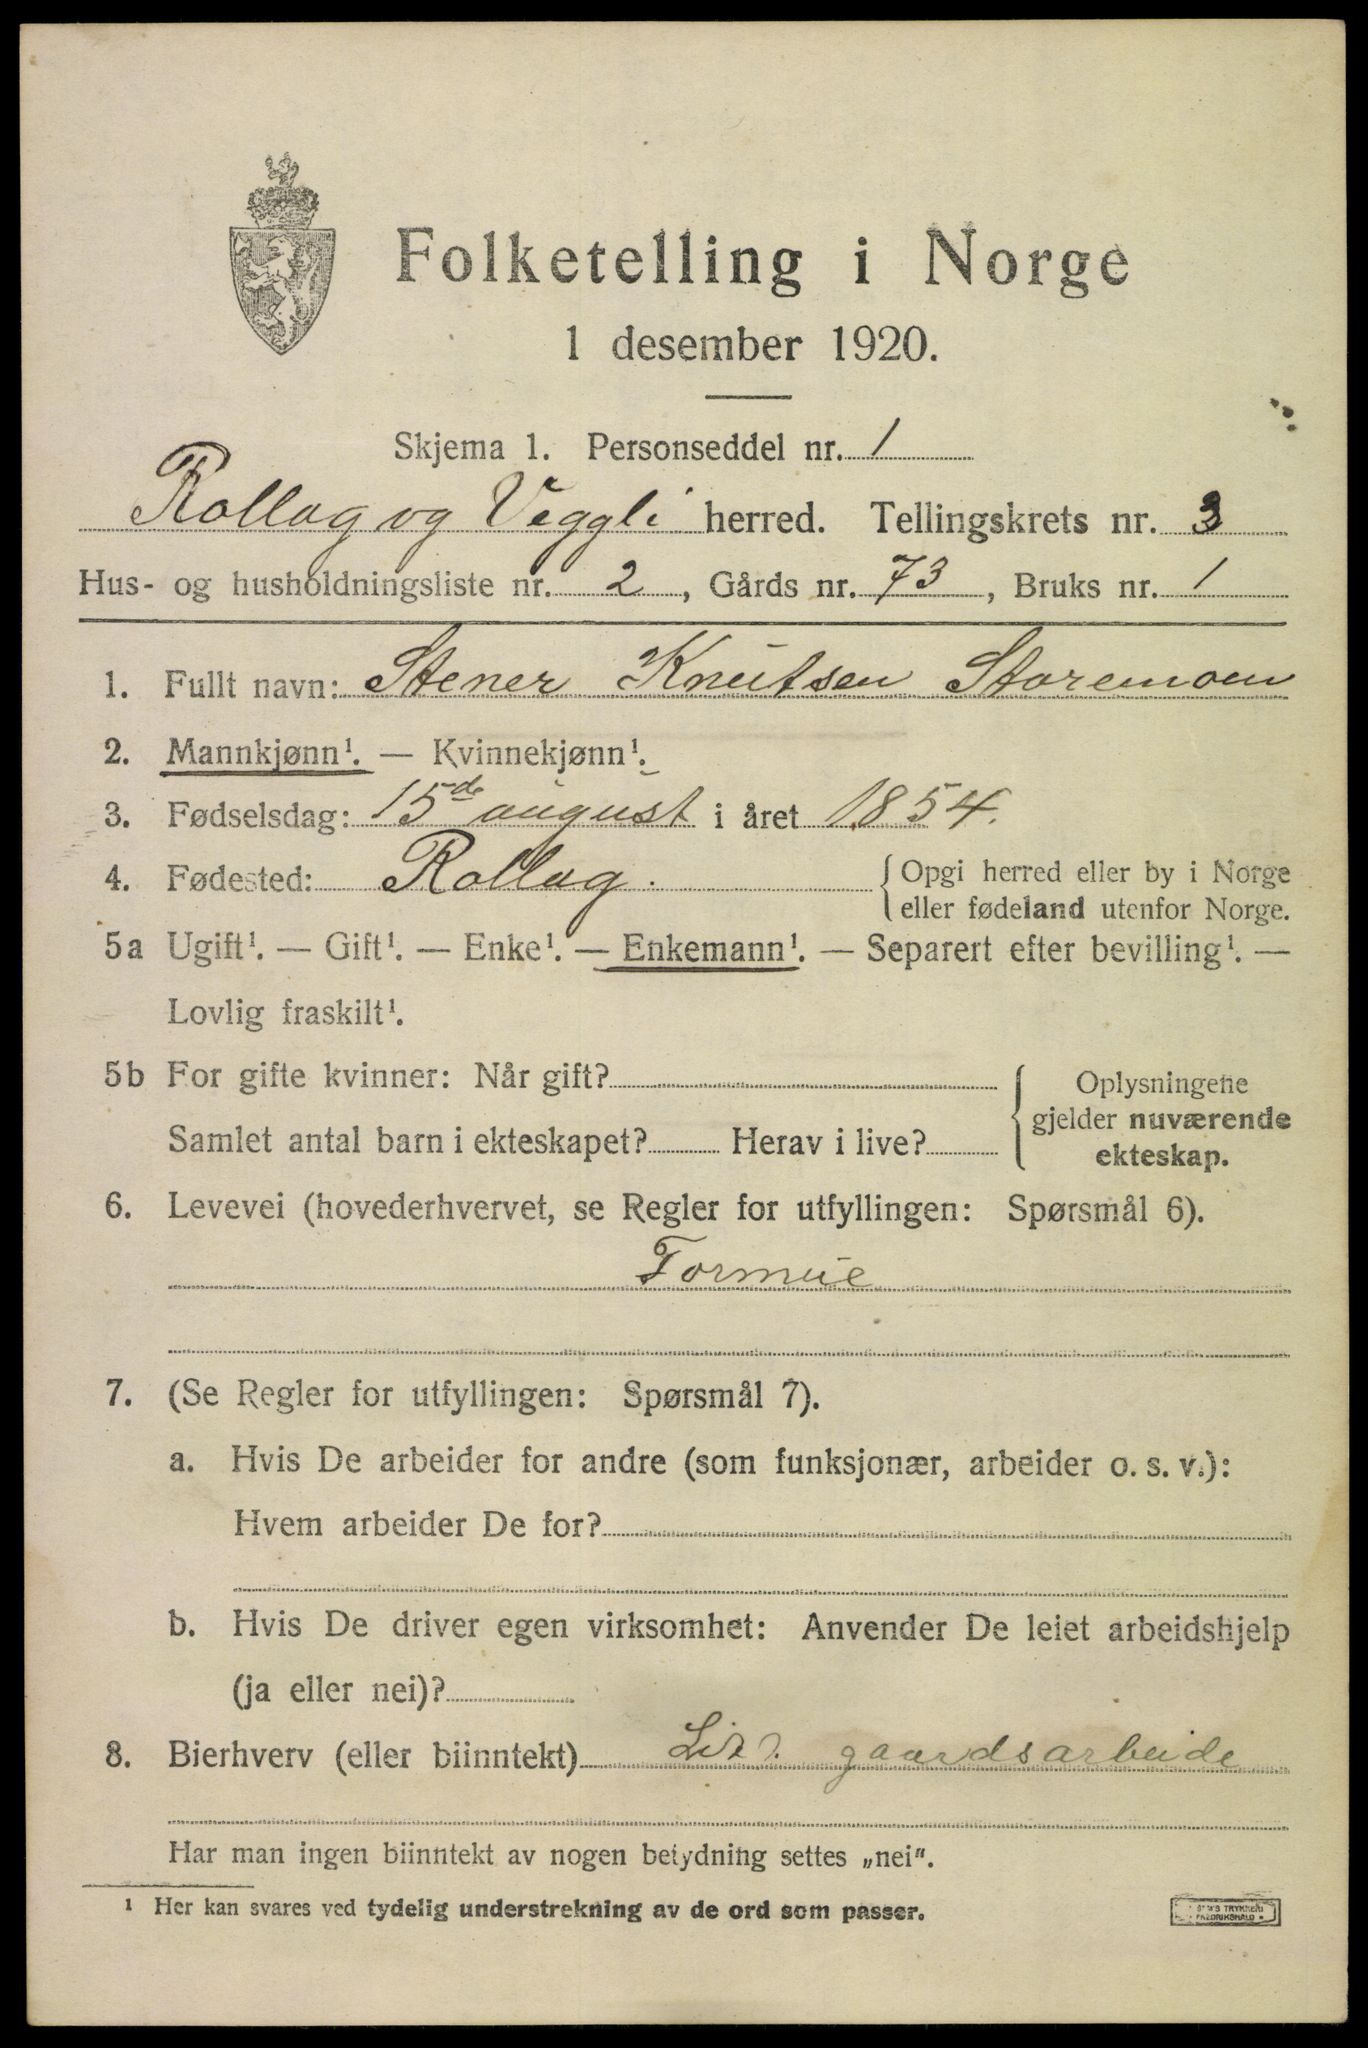 Folketelling i Norge
1 desember 1920.
Skjema 1. Personseddel nr. 1
Rollag og Veggli herred. Tellingskrets nr. 3
Hus- og husholdningsliste nr. 2, Gårds nr. 73, Bruks nr. 1
1. Fullt navn: Stener Knutsen Storemoen
2. Mannkjønn¹. — Kvinnekjønn¹.
3. Fødselsdag: 15de august i året 1854.
4. Fødested: Rollag. { Opgi herred eller by i Norge
eller fødeland utenfor Norge.
5a Ugift¹. — Gift¹. — Enke¹. — Enkemann¹. — Separert efter bevilling¹. —
Lovlig fraskilt¹.
5b For gifte kvinner: Når gift?
Samlet antal barn i ekteskapet? Herav i live?
Oplysningene
gjelder nuværende
ekteskap.
6. Levevei (hovederhvervet, se Regler for utfyllingen: Spørsmål 6).
Formue
7. (Se Regler for utfyllingen: Spørsmål 7).
a. Hvis De arbeider for andre (som funksjonær, arbeider o. s. v.):
Hvem arbeider De for?
b. Hvis De driver egen virksomhet: Anvender De leiet arbeidshjelp
(ja eller nei)?
8. Bierhverv (eller biinntekt) gaardsarbeide
Har man ingen biinntekt av nogen betydning settes „nei".
¹ Her kan svares ved tydelig understrekning av de ord som passer.
TRYKKERI
FREDRIKSHALD